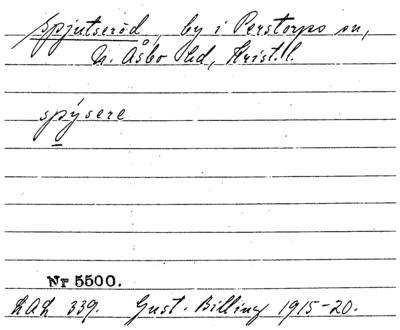 Spjutseröd, by i Perstorps sn,
N. Åsbo hd, Krist. l.
spýsere
Nr 5500.
LAL 339. Gust. Billing 1915-20.